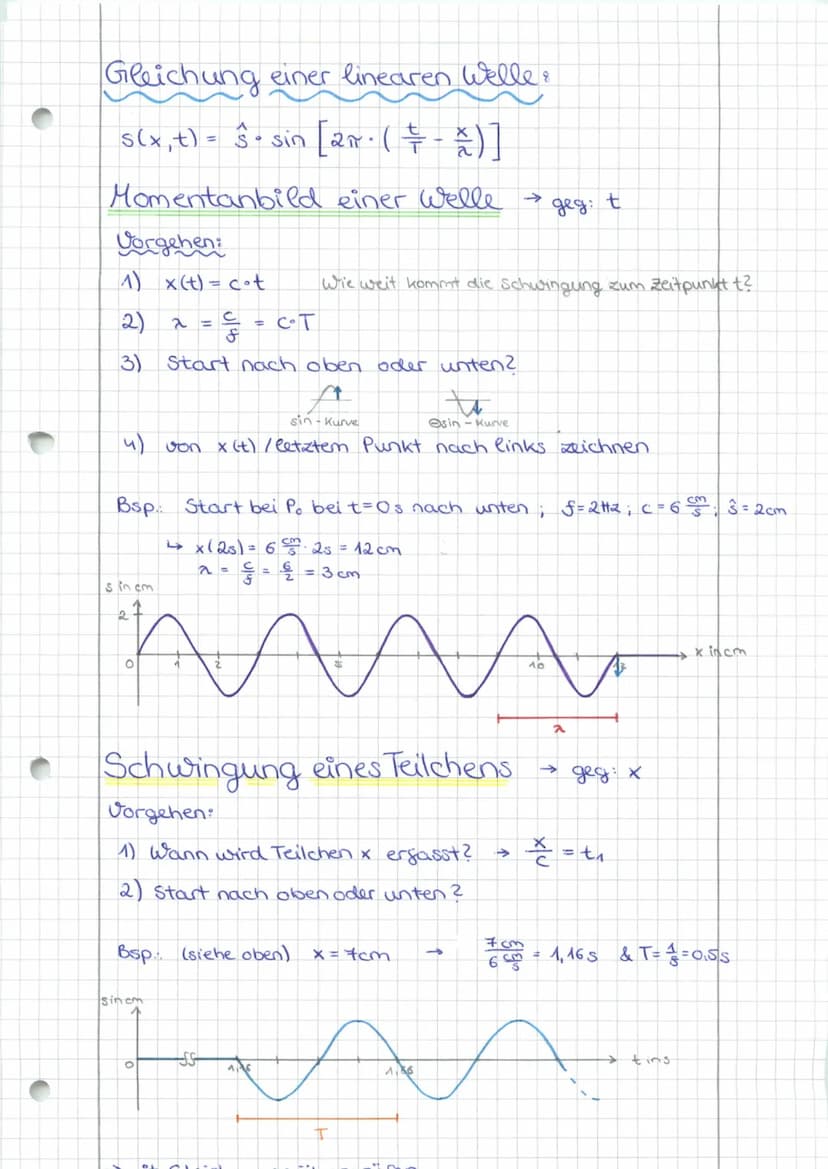 Gleichung einer linearen Welle:
s(x,t) = ŝ · sin [2π · ( t/T - x/λ )]
Momentanbild einer Welle → geg: t
Vorgehen:
1) x(t) = c·t Wie weit kommt die Schwingung zum Zeitpunkt t?
2) λ = c/f = c·T
3) Start nach oben oder unten?
sin-Kurve ⊖sin-Kurve
4) von x(t) / letztem Punkt nach links zeichnen
Bsp.: Start bei P₀ bei t=0s nach unten ; f=2Hz ; c=6 cm/s ; ŝ=2cm
↳ x(2s) = 6 cm/s · 2s = 12cm
λ = c/f = 6/2 = 3cm
s in cm
2
0 1 2 5 10 12 x in cm
λ
Schwingung eines Teilchens → geg: x
Vorgehen:
1) Wann wird Teilchen x erfasst? → x/c = t₁
2) Start nach oben oder unten?
Bsp.: (siehe oben) x = 7cm → 7cm / 6 cm/s = 1,16s & T = 1/f = 0,5s
s in cm
0 1,16 1,66 t in s
T